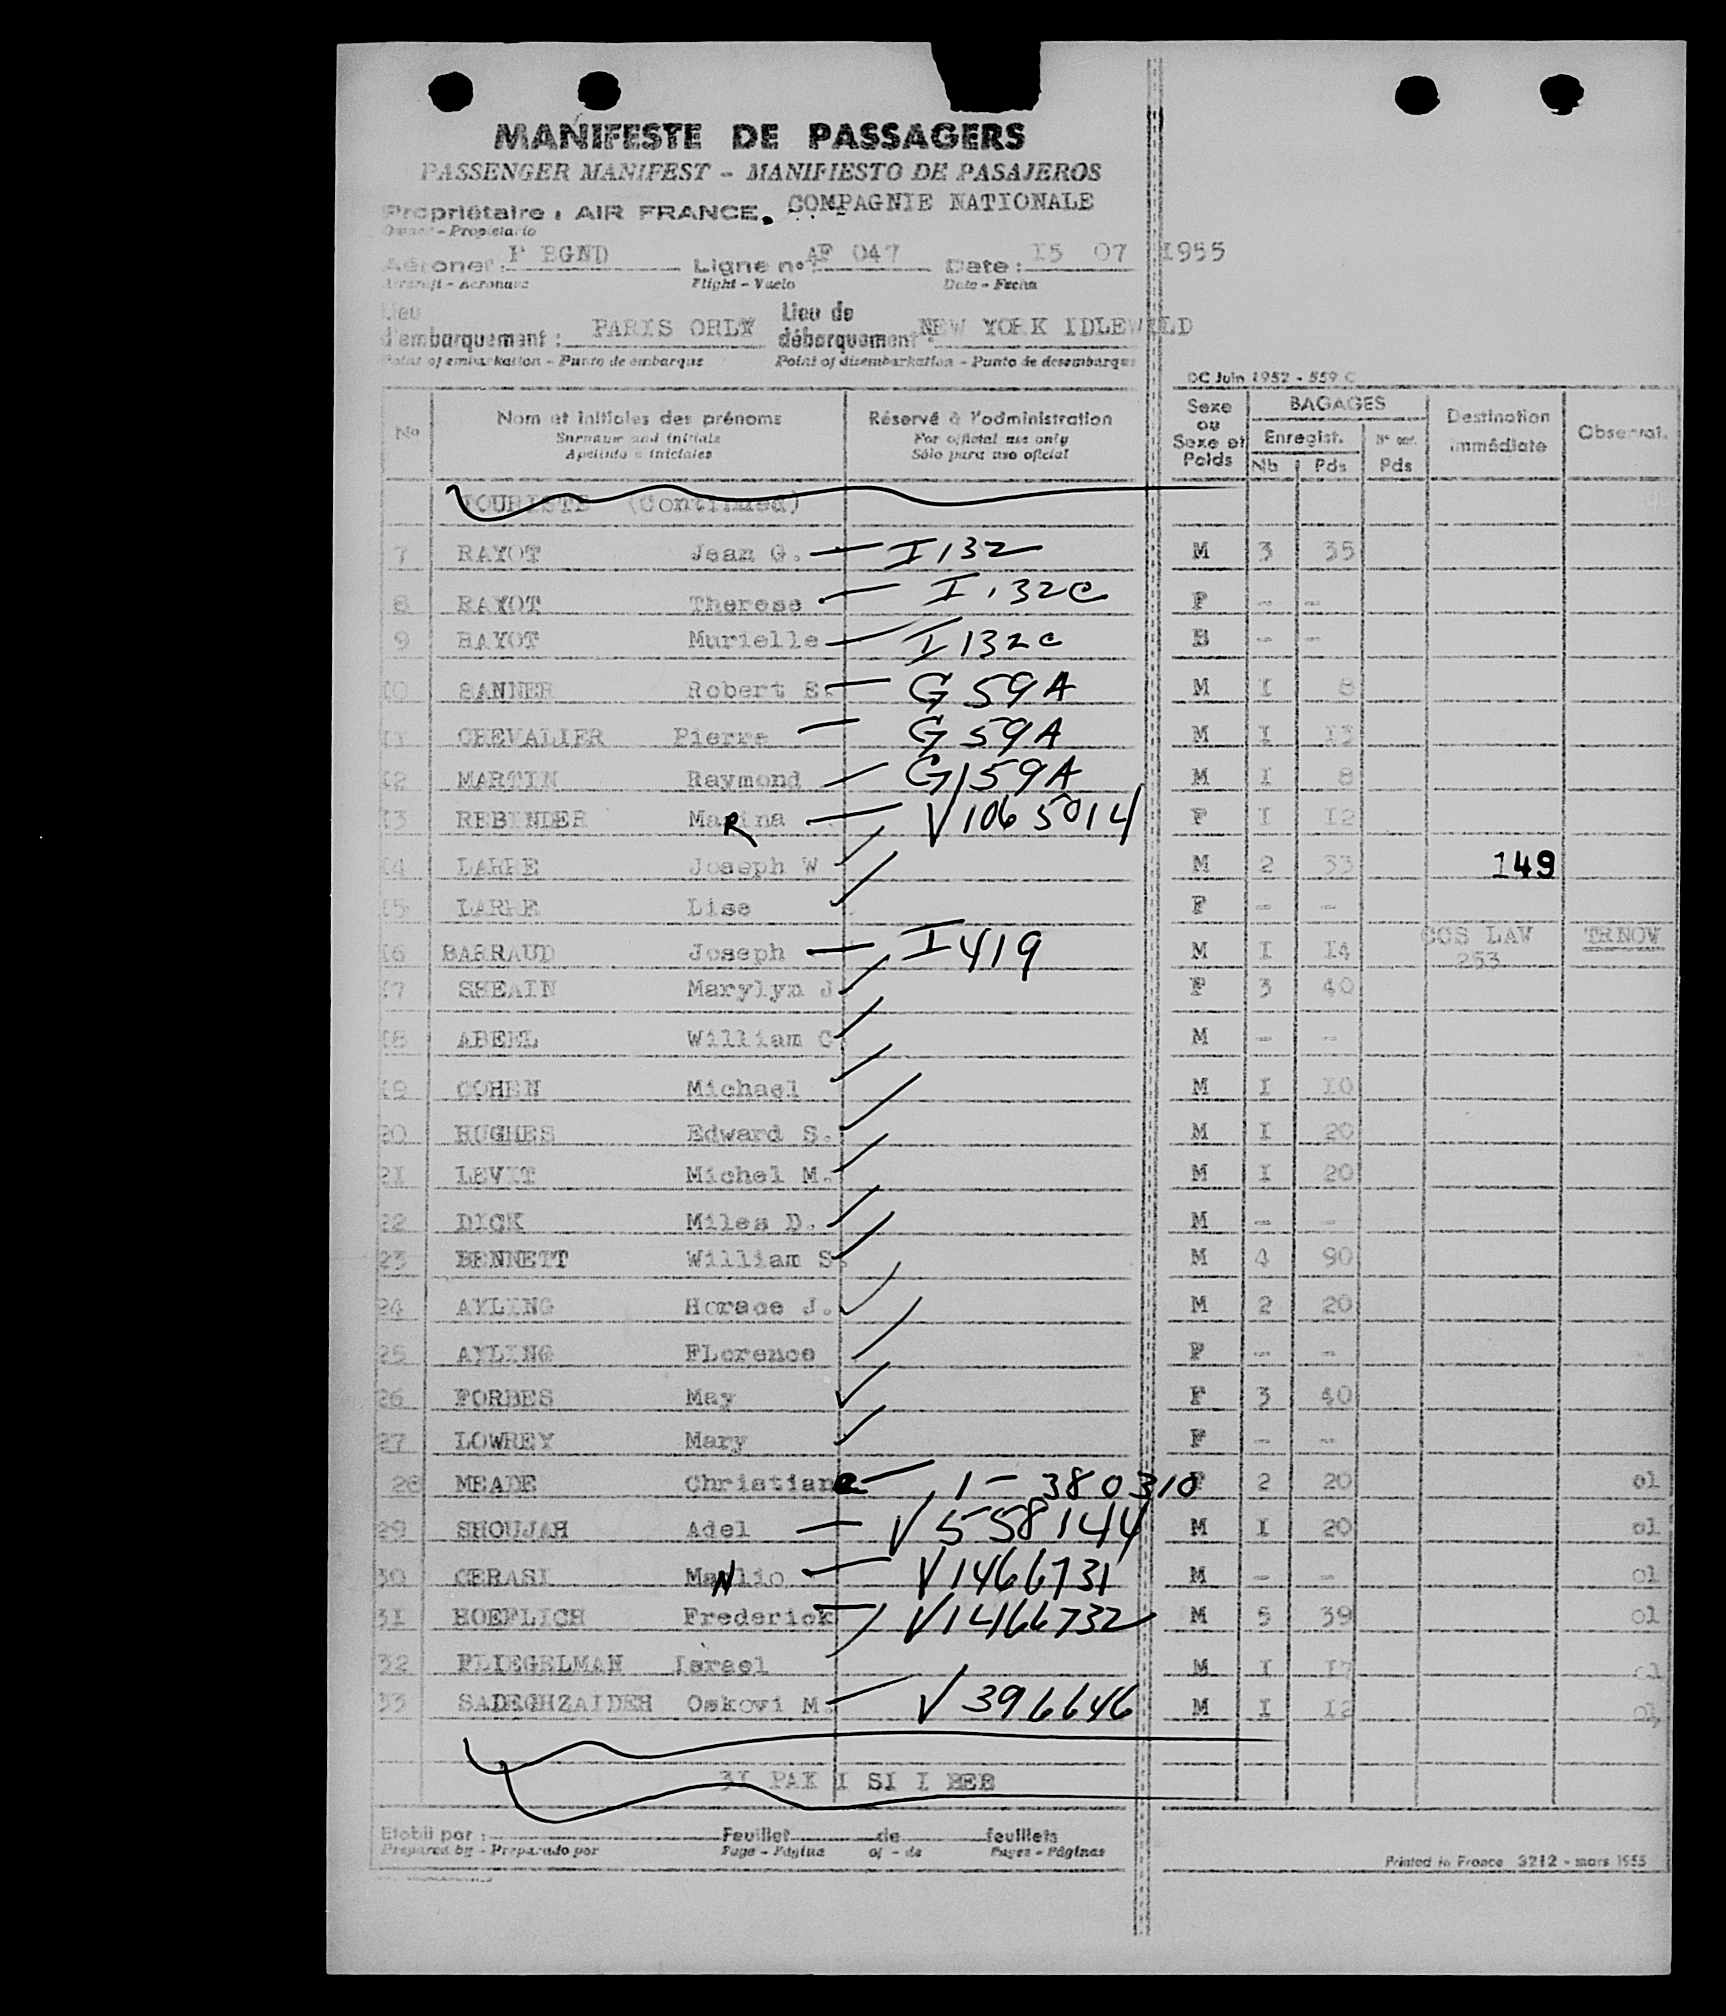 MANIFESTE DE PASSAGERS
PASSENGER MANIFEST - MANIFIESTO DE PASAJEROS
Propriétaire : AIR FRANCE. COMPAGNIE NATIONALE
Owner - Propietario
Aéronef : F BGND Ligne n° : AF 047 Date : I5 07 I955
Aircraft - Aeronave Flight - Vuelo Date - Fecha
Lieu d'embarquement : PARIS ORLY Lieu de débarquement : NEW YORK IDLEWILD
Point of embarkation - Punto de embarque Point of disembarkation - Punto de desembarque
DC Juin 1952 - 559 C
N° Nom et initiales des prénoms Réservé à l'administration Sexe ou Sexe et Poids BAGAGES Destination immédiate Observat.
Surname and initials For official use only Enregist. N° enr.
Apelido e iniciales Sólo para uso oficial Nb Pds Pds
TOURISTE (Continued)
7 RAYOT Jean G. — I 132 M 3 35
8 RAYOT Therese — I 132C F - -
9 RAYOT Murielle — I 132c B - -
I0 SANNER Robert E. — G 59A M I 8
II CHEVALIER Pierre — G 59A M I I3
I2 MARTIN Raymond — G 159A M I 8
I3 REBINDER MaRina — V1065014 F I I2
I4 LARRE Joseph W M 2 33 149
I5 LARRE Lise F - -
I6 BARRAUD Joseph — I 419 M I I4 CCS LAV 253 TRNOV
I7 SHEAIN Marylyn J F 3 40
I8 ABEEL William C M - -
I9 COHEN Michael M I I0
20 HUGHES Edward S. M I 20
2I LEVIT Michel M. M I 20
22 DICK Miles D. M - -
23 BENNETT William S. M 4 90
24 AYLING Horace J. M 2 20
25 AYLING FLorence F - -
26 FORBES May F 3 40
27 LOWREY Mary F - -
28 MEADE Christiane — 1 - 380310 F 2 20 ol
29 SHOUJAH Adel — V 558144 M I 20 ol
30 CERASI MaNlio — V1466731 M - - ol
3I HOEFLICH Frederick — V1466732 M 5 39 ol
32 FLIEGELMAN Israel M I I7 ol
33 SADEGHZAIDEH Oskovi M. — V 396646 M I I2 ol
3I PAK I SI I BEB
Etabli par : Feuillet de feuillets
Prepared by - Preparado por Page - Página of - de Pages - Páginas
Printed in France 3212 - mars 1955